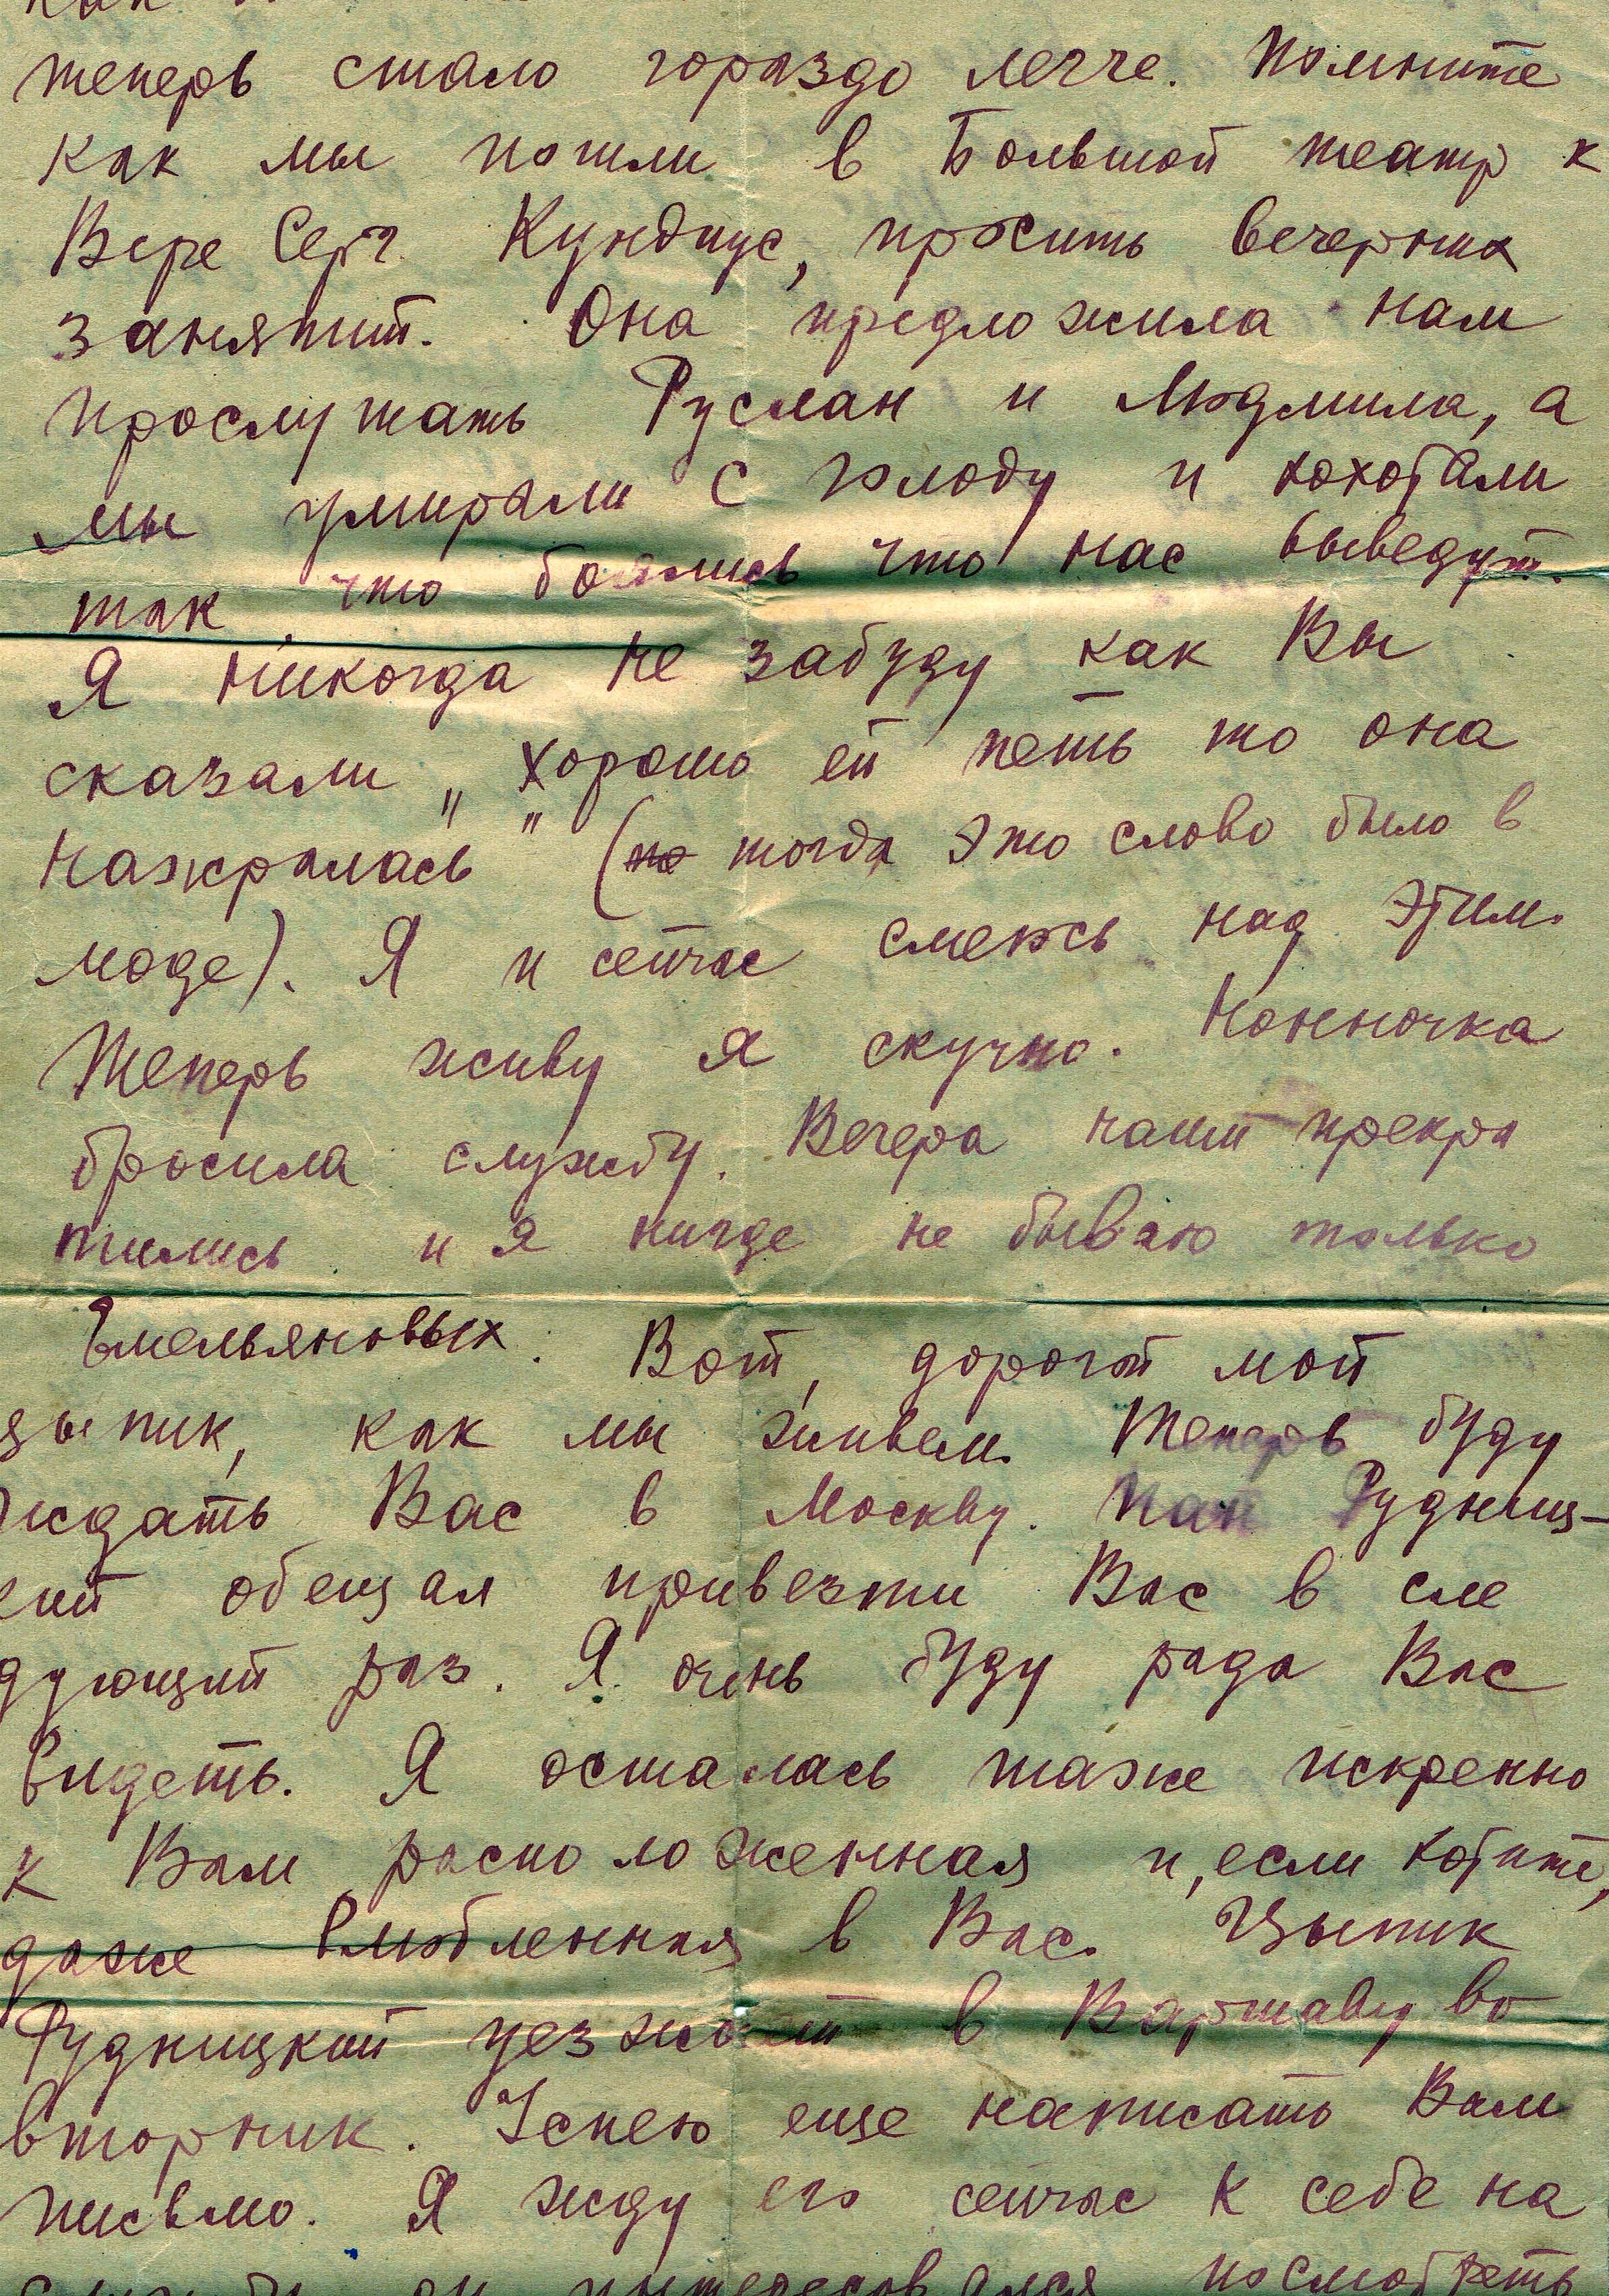 теперь стало гораздо легче. Помните
как мы пошли в Большой театр к
Вере Серг. Кундпус, просить вечерних
занятий. Она предложила нам
прослушать Руслан и Людмила, а
мы умирали с голоду и хохотали
так, что боялись что нас выведут.
Я никогда не забуду как Вы
сказали „хорошо ей петь то она
нажралась" (тогда это слово было в
моде). Я и сейчас смеюсь над этим.
Теперь живу я скучно. Нонночка
бросила службу. Вечера наши прекра
тились и я нигде не бываю только
Емельяновых. Вот, дорогой мой
цыпик, как мы живем. Теперь буду
ждать Вас в Москву. Пан Рудниц-
кий обещал привезти Вас в сле
дующий раз. Я очень буду рада Вас
видеть. Я осталась также искренно
к Вам расположенная и, если хотите,
даже влюбленная в Вас. Цыпик
Рудницкий уезжает в Варшаву во
вторник. Успею еще написать Вам
письмо. Я жду его сейчас к себе на
он интересовался посмотреть